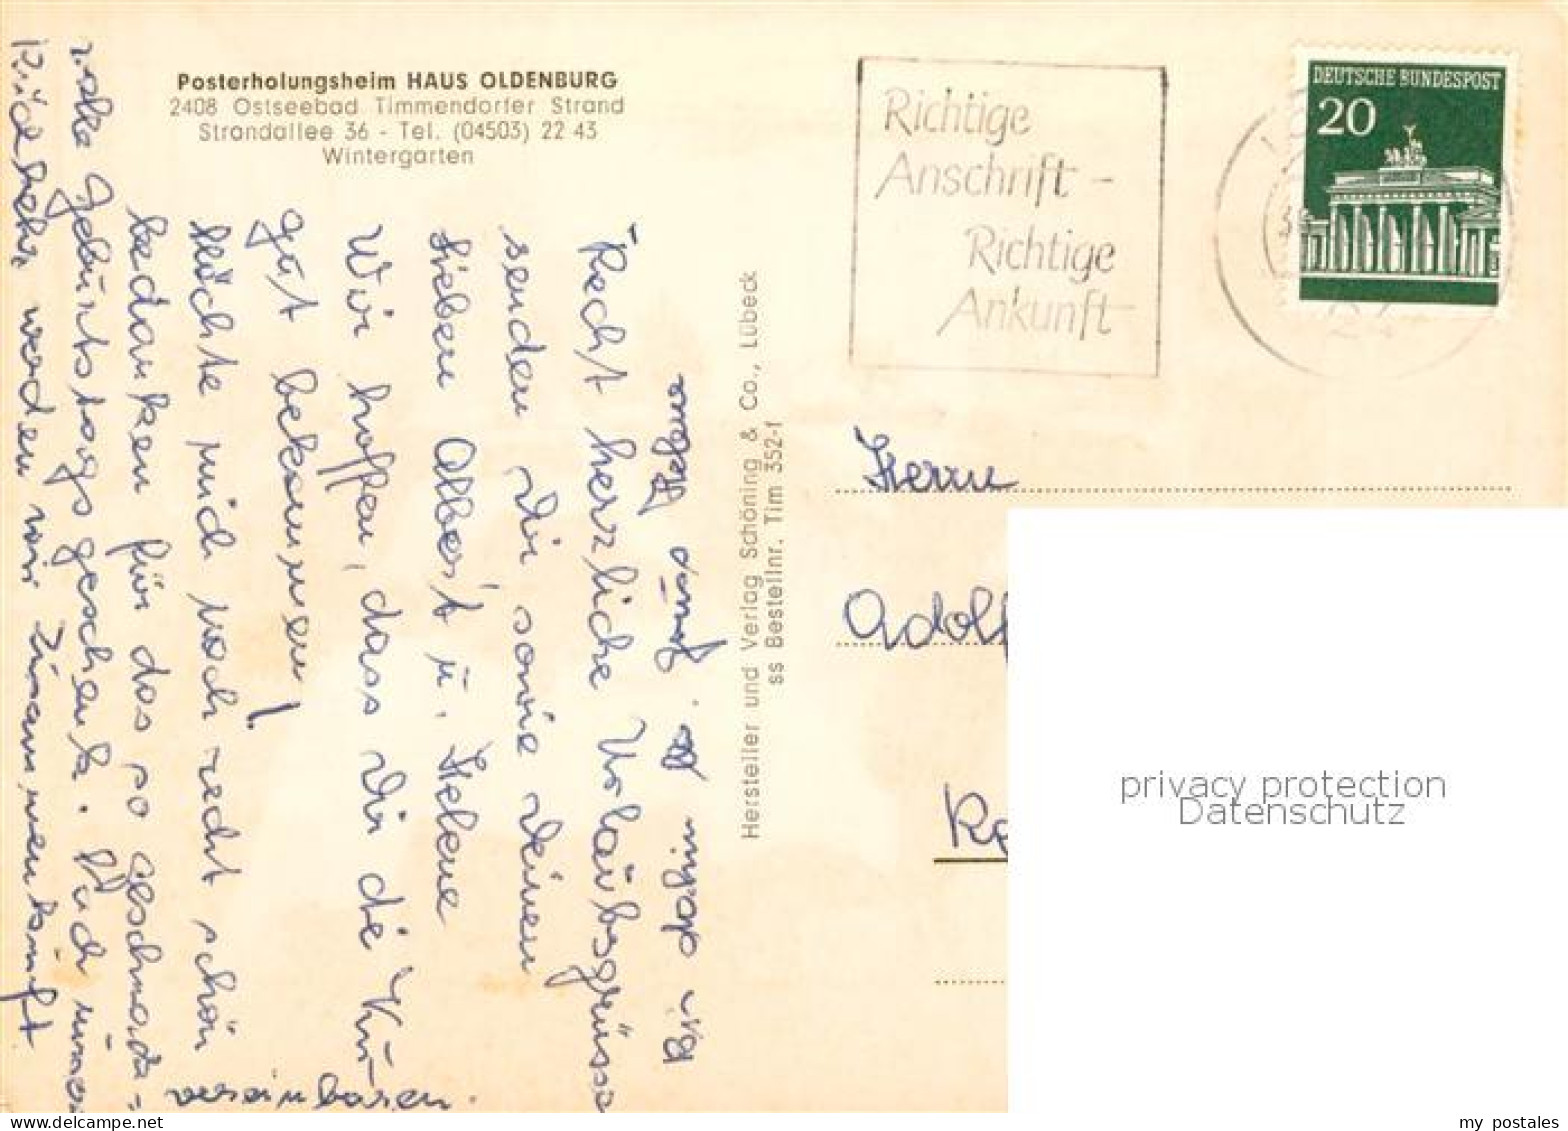 Posterholungsheim HAUS OLDENBURG
2408 Ostseebad Timmendorfer Strand
Strandallee 36 - Tel. (04503) 22 43
Wintergarten
Richtige
Anschrift -
Richtige
Ankunft
DEUTSCHE BUNDESPOST
20
Recht herzliche Urlaubsgrüsse
senden Dir sowie Deinen
lieben Albert u. Helene
Wir hoffen, dass Dir de Kur
gut bekommen!
Möchte mich noch recht schön
bedanken für das so geschmack=
volle Geburtstagsgeschenk. Nach unser
Rückkehr werden wir Zusammenkunft
vereinbaren.
Bis dahin Gruss Helene
Hersteller und Verlag Schöning & Co., Lübeck
ss Bestellnr. Tim 352-f
Herrn
Adolf
privacy protection
Datenschutz
my postales